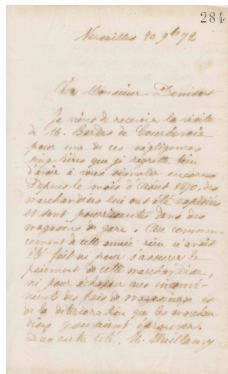 284
Versailles 20 9bre 72
Cher Monsieur Denisart
Je viens de recevoir la visite
de M. Bordes de
pour une de ces négligences
que je regrette bien
d'avoir à vous signaler encore.
Depuis le mois d'Août 1870, des
marchandises lui ont été expédiées
et sont dans des
magasins de gare. Au commen-
cement de cette année rien n'avait
été fait ni pour s'assurer le
paiement de cette marchandise,
ni pour échapper aux inconvé-
nients des frais de magasinage et
de la détérioration que les marchan-
dises pouvaient éprouver
D'un autre côté, M.